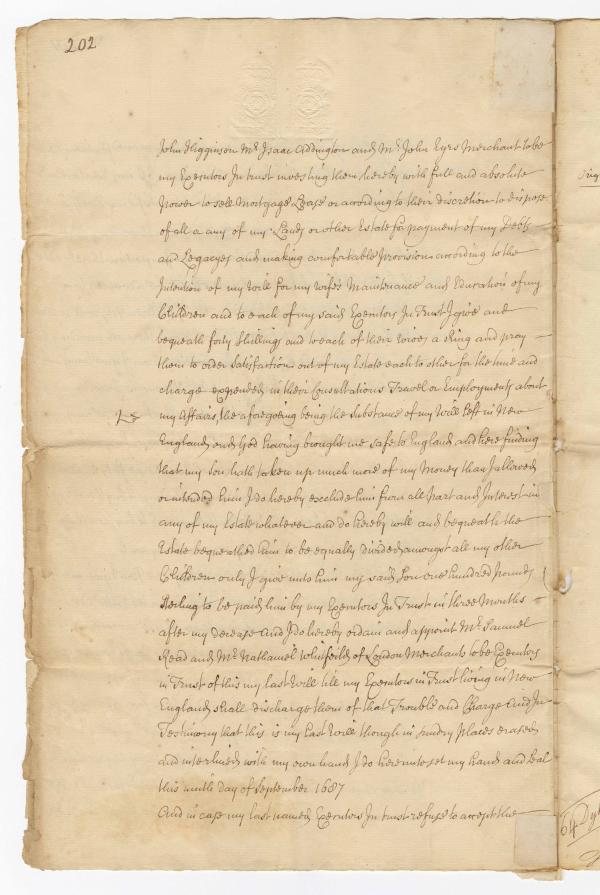 202
John Higginson Mr. Isaac Addington and Mr. John Eyrs Merchant to be
my Executors In trust investing them hereby with full and absolute
Power to sell Mortgage Lease or according to their discretion to dispose
of all a any of my Lands or other Estate for payment of my Debts
and Legacyes and making comfortable Provision according to the
Intention of my Will for my Wife's Maintenance and Education of my
Children and to each of my said Executors In Trust I give and
bequeath forty Shillings and to each of their wives a Ring and pray
them to order Satisfaction out of my Estate each to other for the time and
charge expended in their Consultations Travel or Employments about
my Affairs, the aforegoing being the Substance of my Will left in New
England and God having brought me safe to England and here finding
that my son hath taken up much more of my Money than I allowed
or intended him I do hereby exclude him from all Part and Interest in
any of my Estate whatever and do hereby will and bequeath the
Estate bequeathed him to be equally divided amongst all my other
Children only I give unto him my said Son one hundred Pounds
Sterling to be paid him by my Executors In Trust in three Months
after my decease And I do hereby ordain and appoint Mr. Samuel
Read and Mr. Nathaniel Whitfeild of London Merchants to be Executors
in Trust of this my last Will till my Executors in Trust living in New
England shall discharge them of that Trouble and Charge And In
Testimony that this is my Last Will though in sundry Places erased
and interlined with my own hand I do hereunto set my hand and Seal
this ninth day of September 1687
And in case my last named Executors In trust refuse to accept the